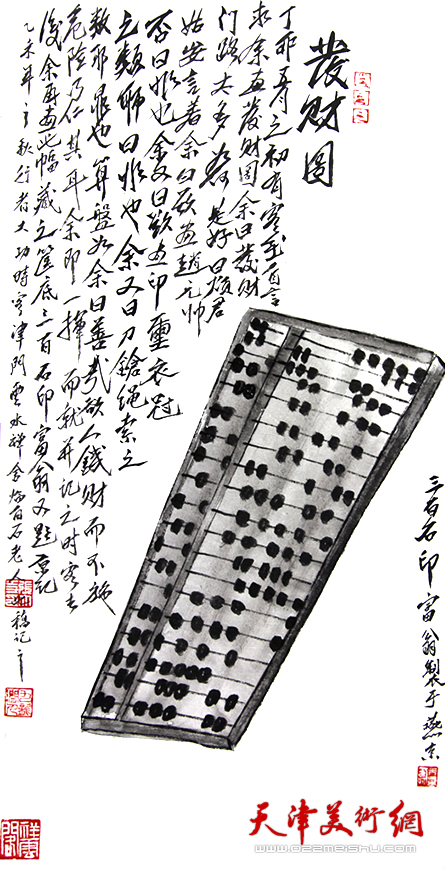 發財圖
丁卯五月之初有客至自言
求余畫發財圖余曰發財
門路太多如何是好曰煩君
姑妄言着余曰欲畫趙元帥
否曰非也余又曰欲畫印璽衣冠
之類耶曰非也余又曰刀鎗繩索之
類耶非也算盤如余曰善哉欲人錢財而不施
危險乃仁具耳余即一揮而就并記之時客去
後余再畫此幅藏之篋底三百石印富翁又題原記
乙未年之秋行者大功時客津門雲水禪舍臨百石老人稿記之
三百石印富翁製于燕京
天津美術網
www.022meishu.com